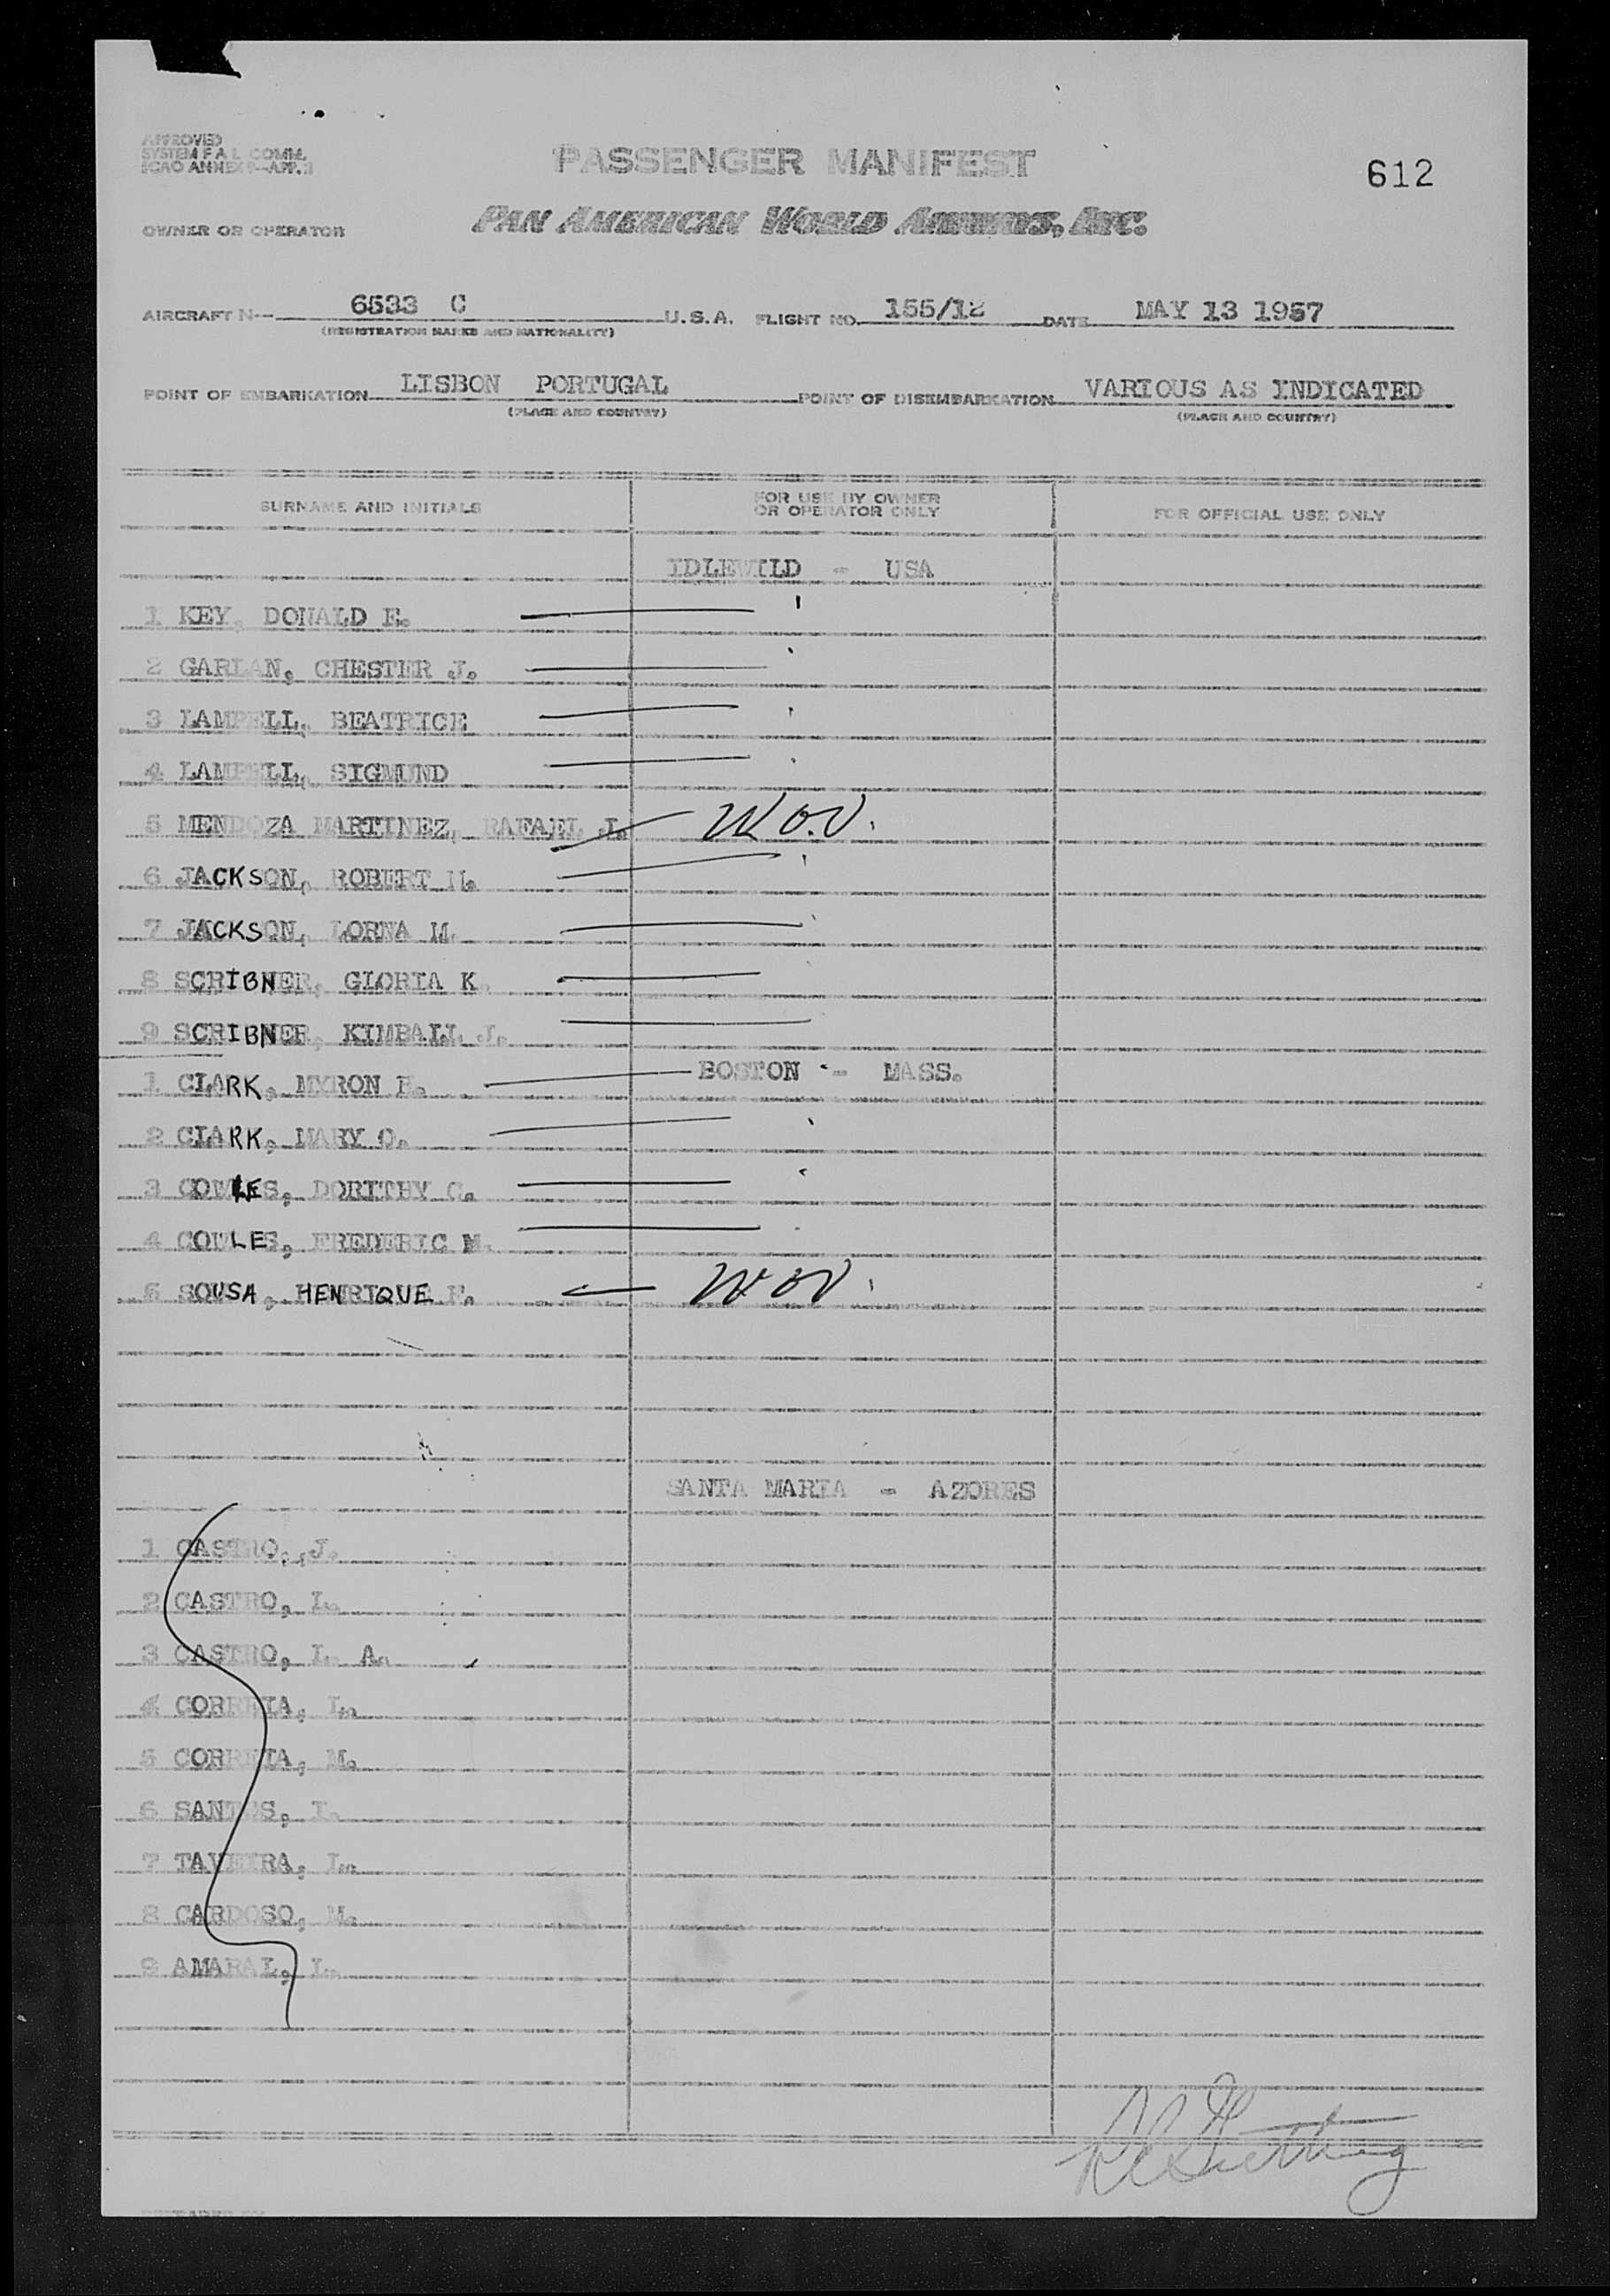 APPROVED
SYSTEM F A L COMM.
ICAO ANNEX 9—APP. 3
PASSENGER MANIFEST
612
OWNER OR OPERATOR
PAN AMERICAN WORLD AIRWAYS, INC.
AIRCRAFT N-- 6533 C U.S.A. FLIGHT NO. 155/12 DATE MAY 13 1957
(REGISTRATION MARKS AND NATIONALITY)
POINT OF EMBARKATION LISBON PORTUGAL POINT OF DISEMBARKATION VARIOUS AS INDICATED
(PLACE AND COUNTRY) (PLACE AND COUNTRY)
SURNAME AND INITIALS FOR USE BY OWNER OR OPERATOR ONLY FOR OFFICIAL USE ONLY
IDLEWILD - USA
1 KEY, DONALD E.
2 GARLAN, CHESTER J.
3 LAMPELL, BEATRICE
4 LAMPELL, SIGMUND
5 MENDOZA MARTINEZ, RAFAEL J. WOV.
6 JACKSON, ROBERT H.
7 JACKSON, LORNA M.
8 SCRIBNER, GLORIA K.
9 SCRIBNER, KIMBALL J.
1 CLARK, MYRON H. BOSTON - MASS.
2 CLARK, MARY O.
3 COWLES, DORITHY C.
4 COWLES, FREDERIC M.
5 SOUSA, HENRIQUE F. WOV.
SANTA MARIA - AZORES
1 CASTRO, J.
2 CASTRO, L.
3 CASTRO, L. A.
4 CORREIA, L.
5 CORREIA, M.
6 SANTOS, I.
7 TAVEIRA, L.
8 CARDOSO, M.
9 AMARAL, L.